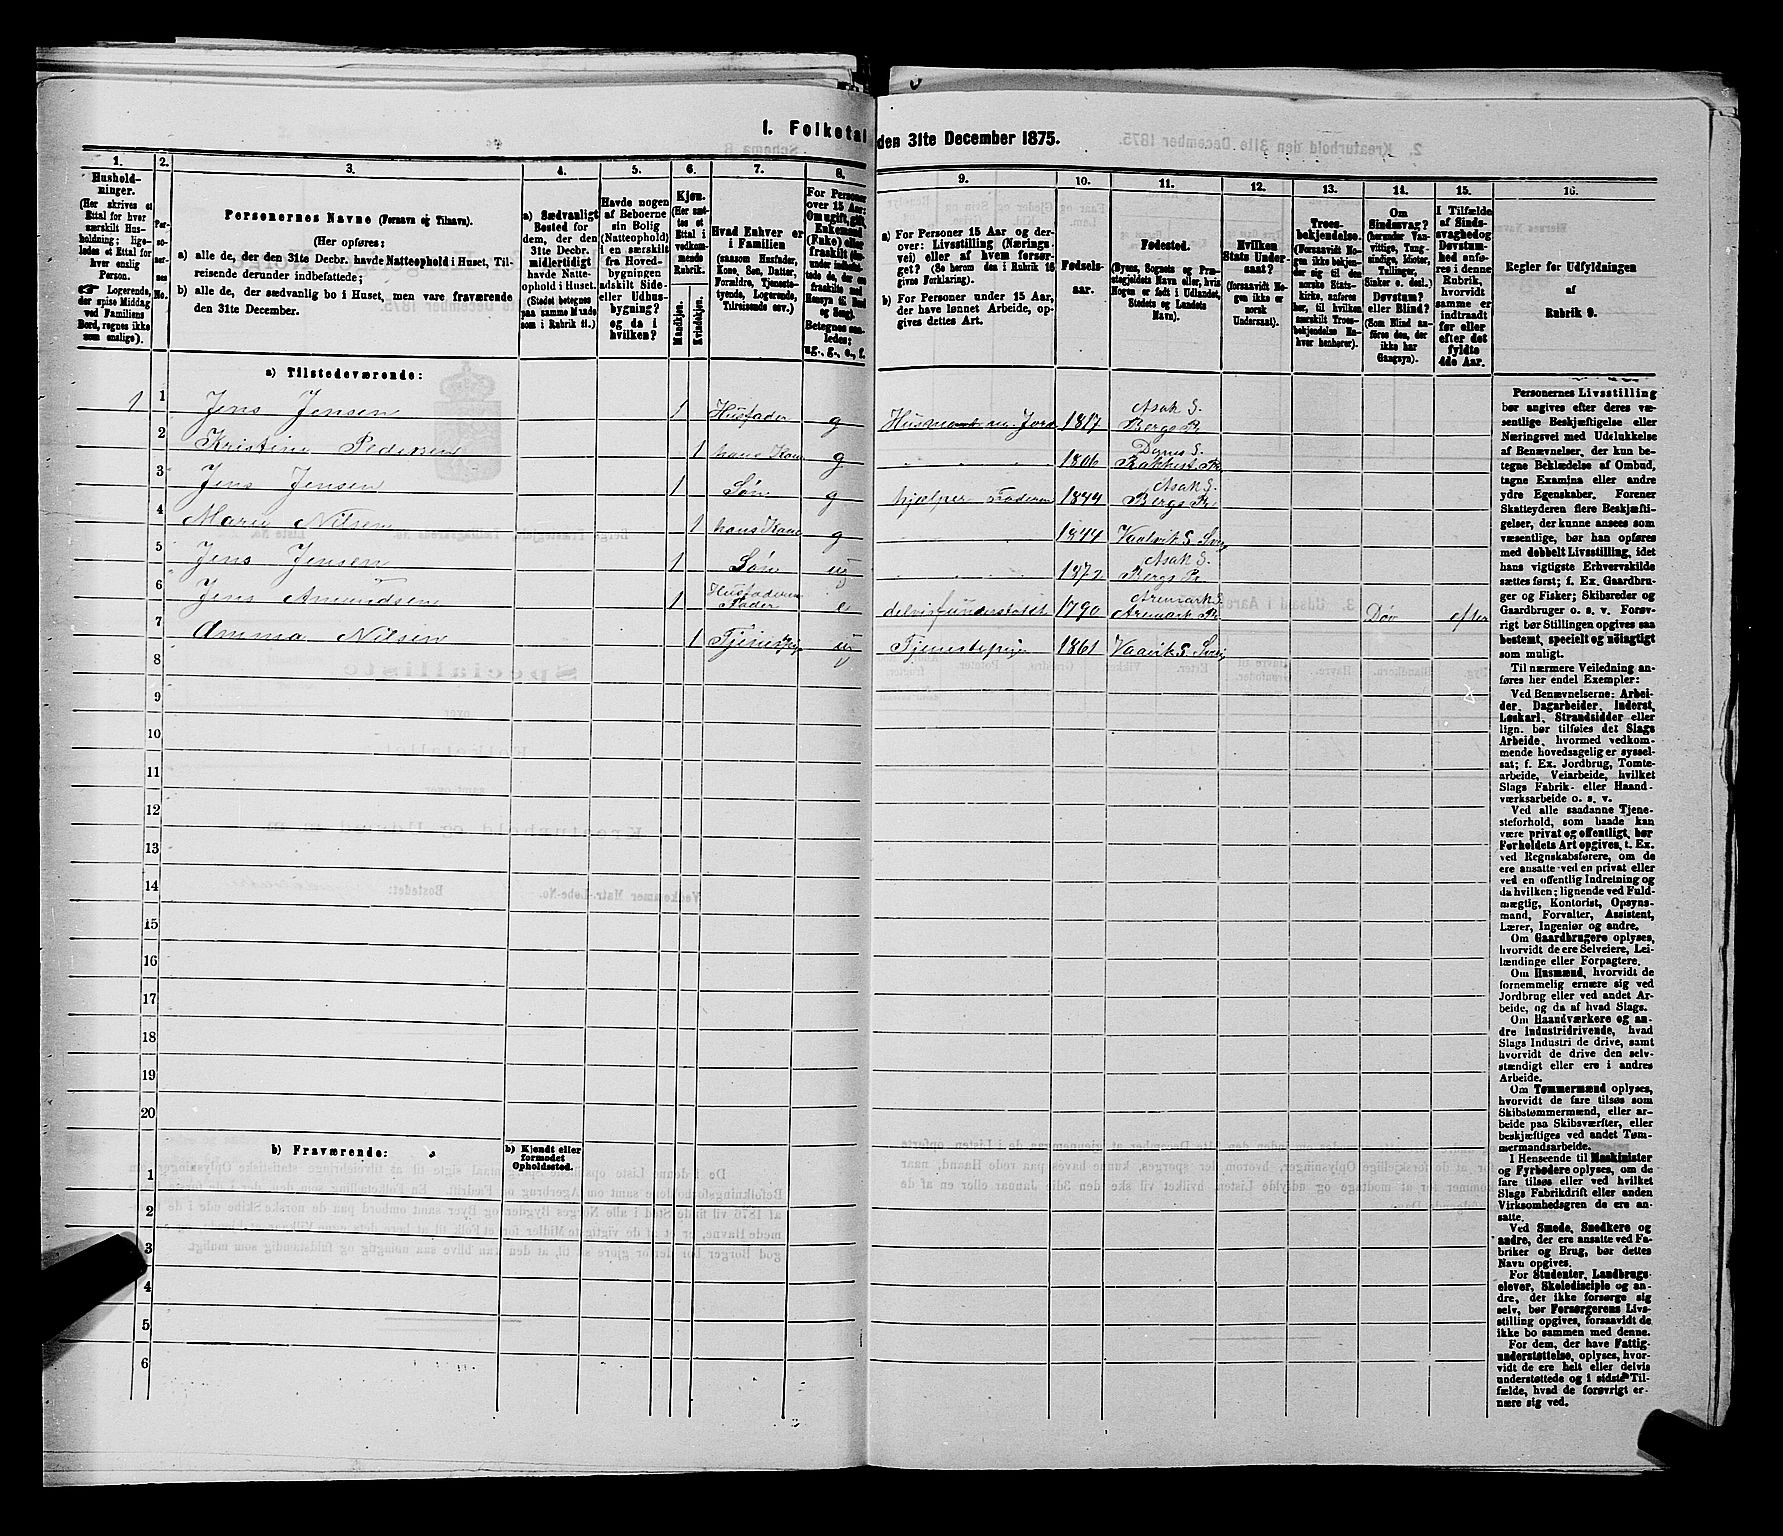 I. Folketal den 31te December 1875.
1. 2. 3. 4. 5. 6. 7. 8. 9. 10. 11. 12. 13. 14. 15. 16.
Hushold-
ninger.
(Her skrives et
Ettal for hver
særskilt Hus-
holdning; lige-
ledes et Ettal for
hver enslig
Person.
☞ Logerende,
der spise Middag
ved Familiens
Bord, regnes ikke
som enslige).
Per-
so-
ner-
nes
No.
Personernes Navne (Fornavn og Tilnavn).
(Her opføres:
a) alle de, der den 31te Decbr. havde Natteophold i Huset, Til-
reisende derunder indbefattede;
b) alle de, der sædvanlig bo i Huset, men vare fraværende
den 31te December.
a) Sædvanligt
Bosted for
dem, der den
31te Decbr.
midlertidigt
havde Natte-
ophold i Huset.
(Stedet betegnes
paa samme Maade
som i Rubrik 11.)
Havde nogen
af Beboerne
sin Bolig
(Natteophold)
i en særskilt
fra Hoved-
bygningen
adskilt Side-
eller Udhus-
bygning?
og da i
hvilken?
Kjøn.
(Her sæt-
tes et
Ettal i
vedkom-
mende
Rubrik.
Mandkjøn.
Kvindekjøn.
Hvad Enhver er
i Familien
(saasom Husfader,
Kone, Søn, Datter,
Forældre, Tjeneste-
tyende, Logerende,
Tilreisende osv.)
For Personer
over 15 Aar:
Om ugift, gift,
Enkemand
(Enke) eller
fraskilt
Betegnes saa-
ledes:
ug., g., e., f.
a) For Personer 15 Aar og der-
over: Livsstilling (Nærings-
vei) eller af hvem forsør-
get? (Se herom den i Rubrik 16
givne Forklaring).
b) For Personer under 15 Aar,
der have lønnet Arbeide, op-
gives dettes Art.
Fødsels-
aar.
Fødested.
(Byens, Sognets og Præ-
stegjeldets Navn eller, hvis
Nogen er født i Udlandet,
Stedets og Landets
Navn).
Hvilken
Stats Under-
saat?
(forsaavidt No-
gen ikke er
norsk
Undersaat).
Troes-
bekjendelse.
(Forsaavidt No-
gen ikke bekjen-
der sig til den
norske Stats-
kirke, anføres
her, til hvilken
særskilt Troes-
bekjendelse En-
hver henhører).
Om
Sindssvag?
(herunder Van-
vittige, Idioter,
Tullinger,
Sinker o. desl.)
Døvstum?
eller Blind?
(Som Blind an-
føres den, der
ikke har
Gangsyn).
I Tilfælde
af Sinds-
svaghed og
Døvstum-
hed anfø-
res i denne
Rubrik,
hvorvidt
samme er
indtraadt
før eller
efter det
fyldte
4de Aar.
Regler for Udfyldningen
af
Rubrik 9.
a) Tilstedeværende:
1 1 Jens Jensen 1 Husfader g Husmand m. Jord 1817 Asak S. Bergs Pr.
2 Kristine Pedersen 1 hans Kone g 1806 S. Rakkest. Pr.
3 Jens Jensen 1 Søn g hjælper Faderen 1844 Asak S. Bergs Pr.
4 Marie Nilsen 1 hans Kone g 1844
5 Jens Jensen 1 Søn ug 1872 Asak S. Bergs Pr.
6 Jens Amundsen 1 Husfaderens Fader e delvis understøttet 1790 Aremark S. Aremark Pr. Døv efter
7 Anna Nilsen 1 ug 1861
8
9
10
11
12
13
14
15
16
17
18
19
20
b) Fraværende:
b) Kjendt eller
formodet
Opholdssted.
1
2
3
4
5
6
Personernes Livsstilling
bør angives efter deres væ-
sentlige Beskjæftigelse eller
Næringsvei med Udelukkelse
af Benævnelser, der kun be-
tegne Beklædelse af Ombud,
tagne Examina eller andre
ydre Egenskaber. Forener
Skatteyderen flere Beskjæfti-
gelser, der kunne ansees som
væsentlige, bør han opføres
med dobbelt Livsstilling, idet
hans vigtigste Erhvervskilde
sættes først; f. Ex. Gaardbru-
ger og Fisker; Skibsreder og
Gaardbruger o. s. v. Forøv-
rigt bør Stillingen opgives saa
bestemt, specielt og nøiagtigt
som muligt.
Til nærmere Veiledning an-
føres her endel Exempler:
Ved Benævnelserne: Arbei-
der, Dagarbeider, Inderst,
Løskarl, Strandsidder eller
lign. bør tilføies det Slags
Arbeide, hvormed vedkom-
mende hovedsagelig er syssel-
sat; f. Ex. Jordbrug, Tomte-
arbeide, Veiarbeide, hvilket
Slags Fabrik- eller Haand-
værksarbeide o. s. v.
Ved alle saadanne Tjene-
steforhold, som baade kan
være privat og offentligt, bør
Forholdets Art opgives, t. Ex.
ved Regnskabsførere, om de
ere ansatte ved en privat eller
ved en offentlig Indretning og
da hvilken; lignende ved Fuld-
mægtig, Kontorist, Opsyns-
mand, Forvalter, Assistent,
Lærer, Ingeniør og andre.
Om Gaardbrugere oplyses,
hvorvidt de ere Selveiere, Lei-
lændinge eller Forpagtere.
Om Husmænd, hvorvidt de
fornemmelig ernære sig ved
Jordbrug eller ved andet Ar-
beide, og da af hvad Slags.
Om Haandværkere og an-
dre Industridrivende, hvad
Slags Industri de drive, samt
hvorvidt de drive den selv-
stændigt eller ere i andres
Arbeide.
Om Tømmermænd oplyses,
hvorvidt de fare tilsøs som
Skibstømmermænd, eller ar-
beide paa Skibsværfter, eller
beskjæftiges ved andet Tøm-
mermandsarbeide.
I Henseende til Maskinister
og Fyrbødere oplyses, om de
fare tilsøs eller ved hvilket
Slags Fabrikdrift eller anden
Virksomhedsgren de ere an-
satte.
Ved Smede, Snedkere og
andre, der ere ansatte ved Fa-
briker og Brug, bør dettes
Navn opgives.
For Studenter, Landbrugs-
elever, Skoledisciple og an-
dre, der ikke forsørge sig
selv, bør Forsørgerens Livs-
stilling opgives, forsaavidt de
ikke bo sammen med denne.
For dem, der have Fattig-
understøttelse, oplyses, hvor-
vidt de ere helt eller delvis
understøttede og i sidste Til-
fælde, hvad de forøvrigt er-
nære sig ved.